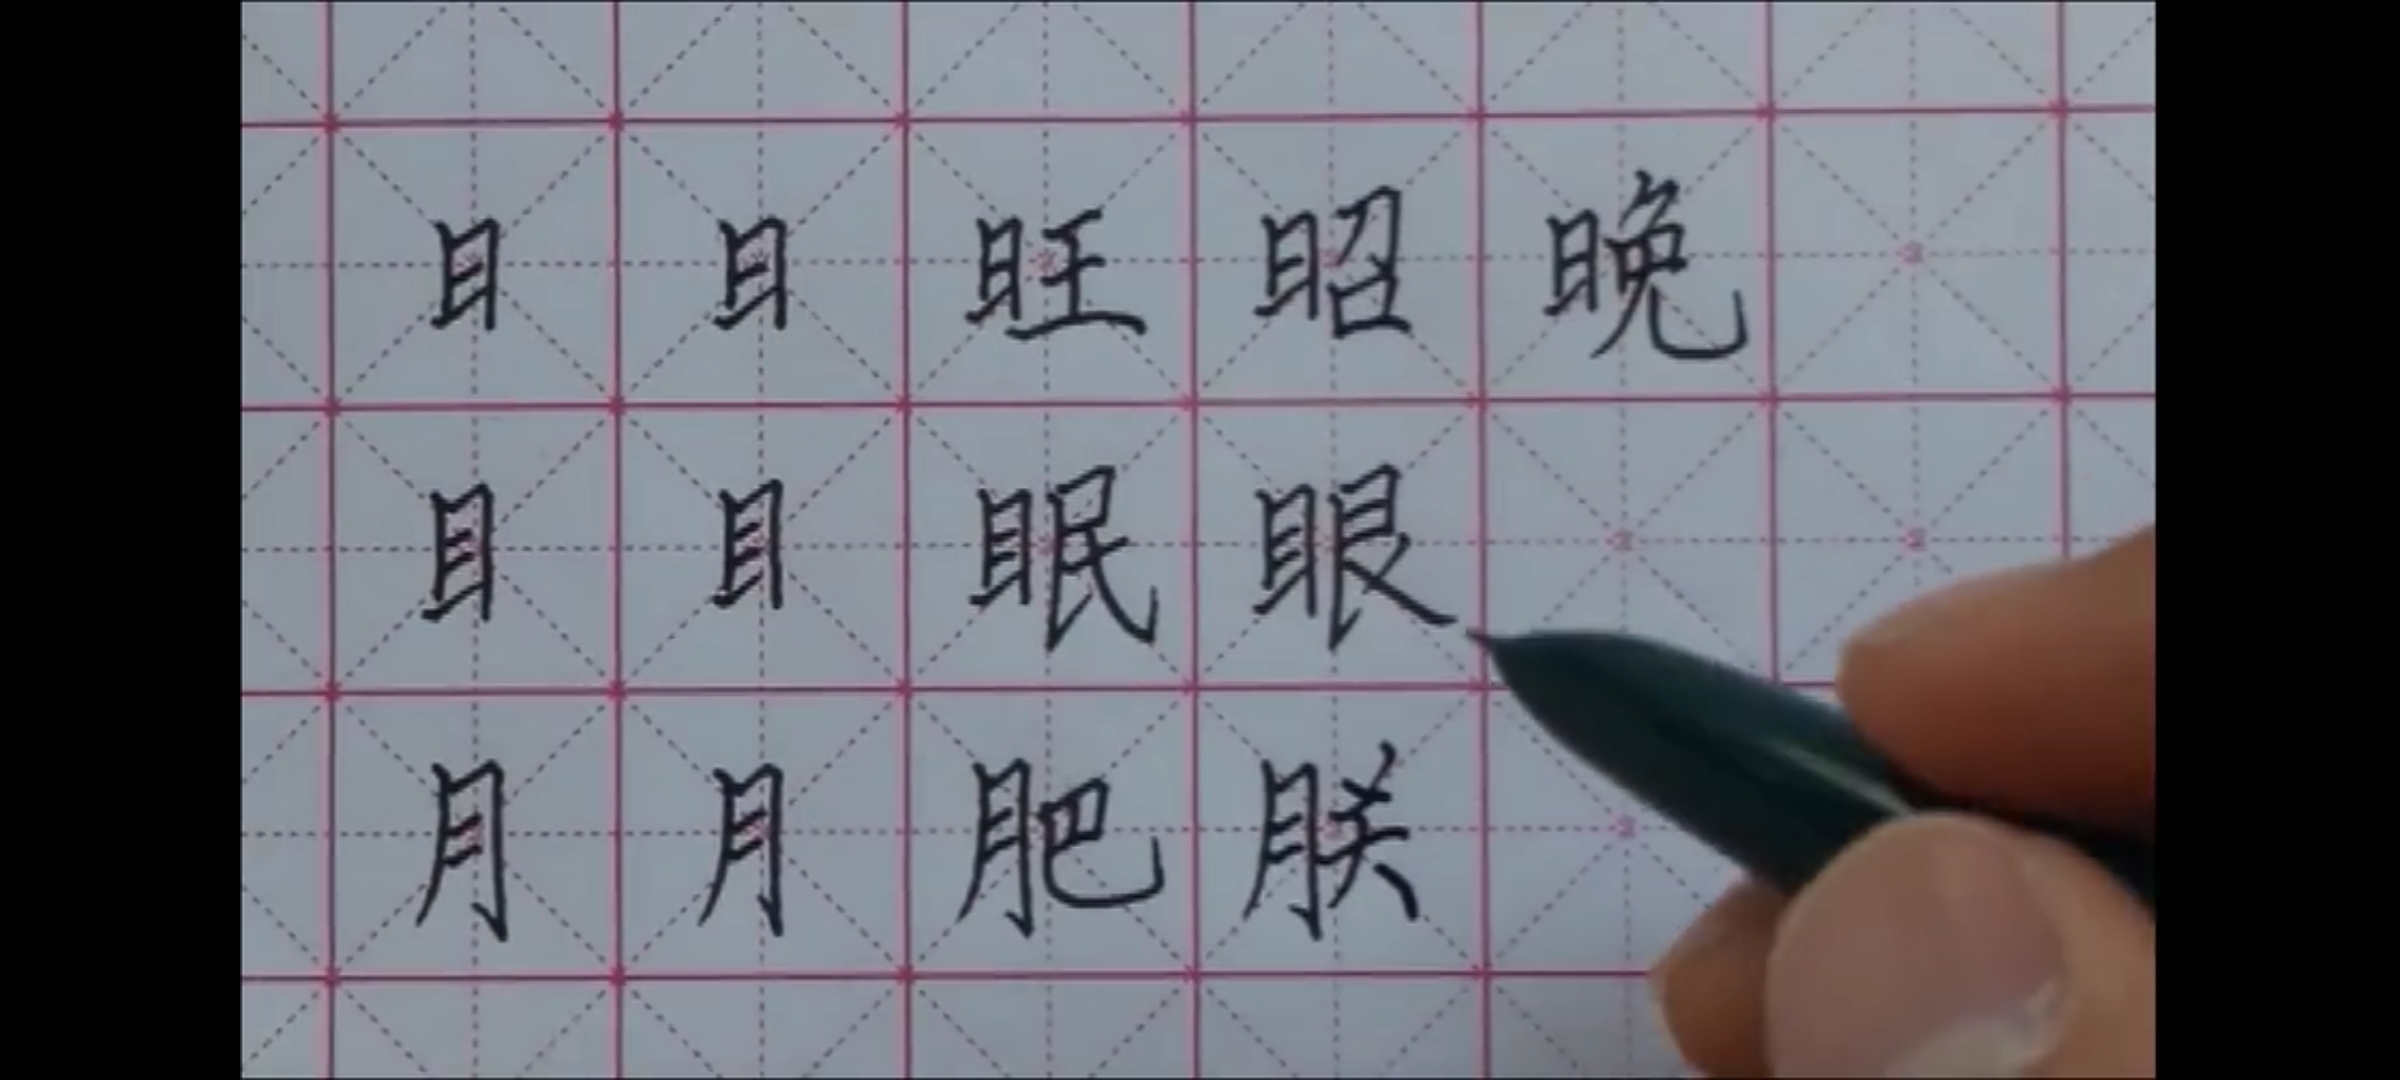 日日旺昭晚
目目眠眼
月月肥朕